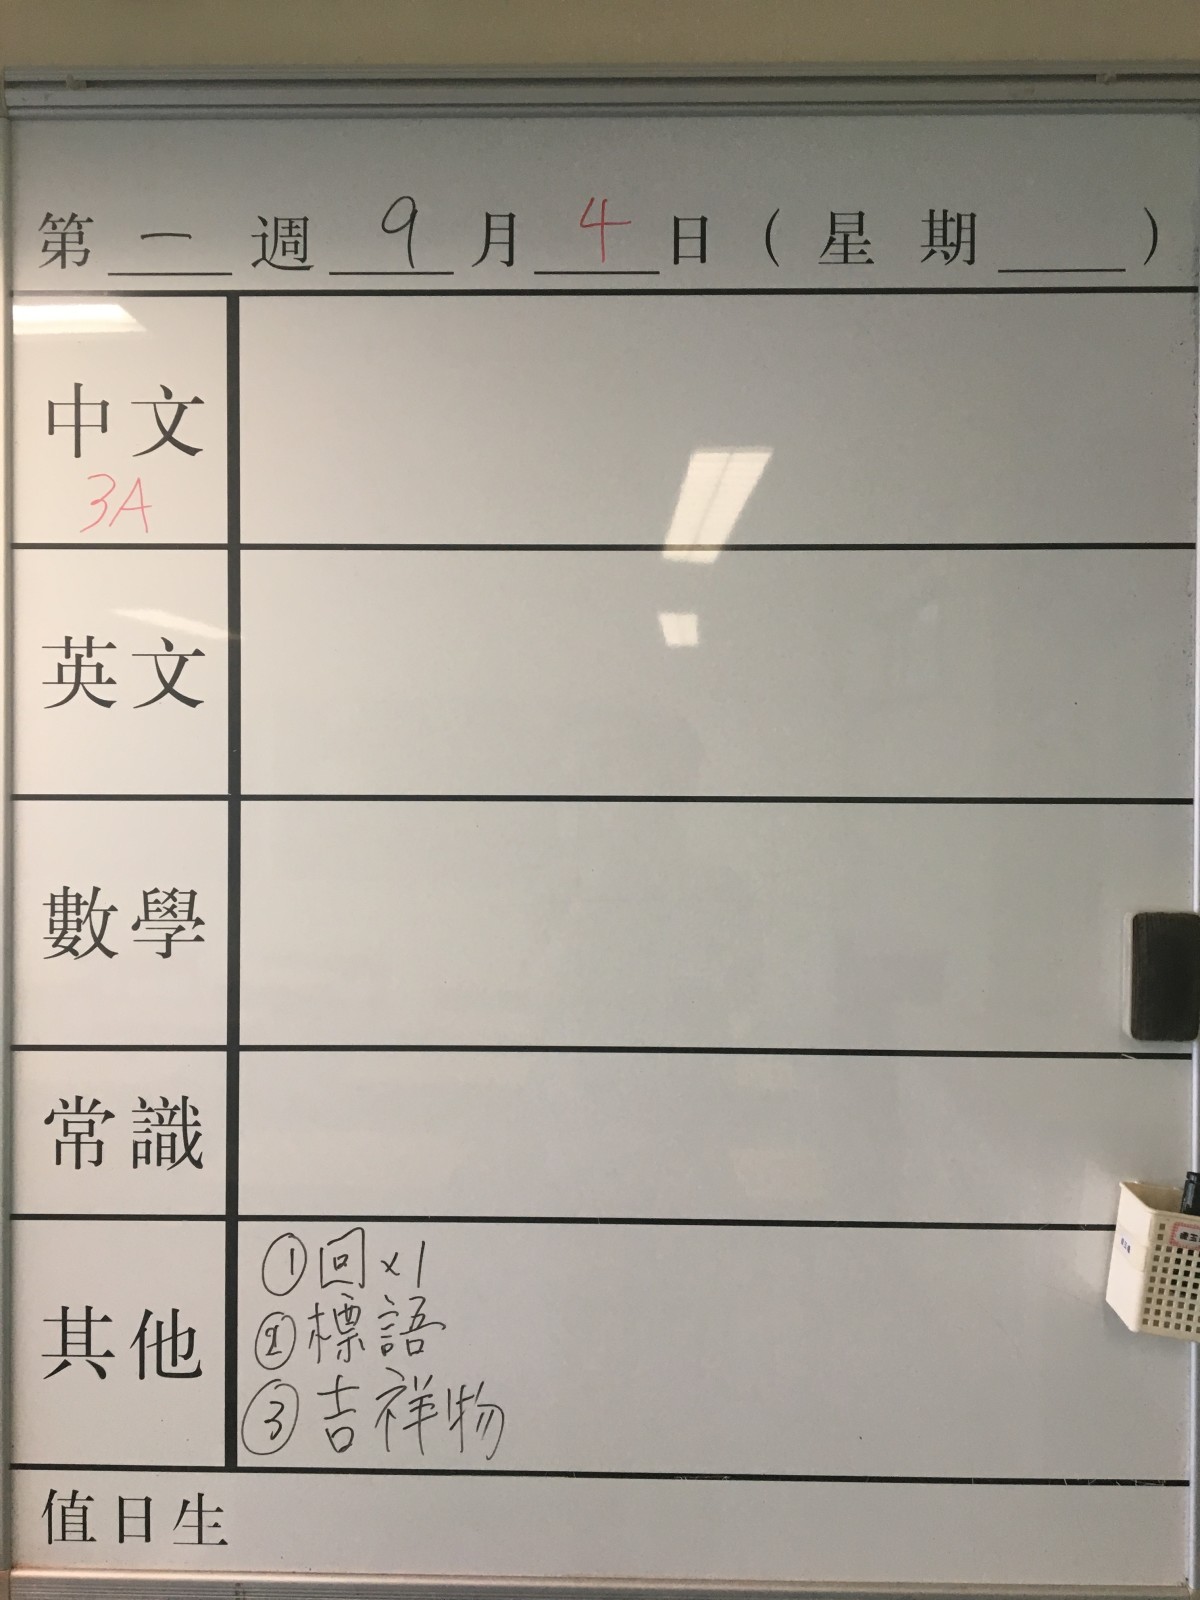 第 一 週 9 月 4 日 ( 星 期 ___ )
中文
3A
英文
數學
常識
其他
① 回 x1
② 標語
③ 吉祥物
值日生